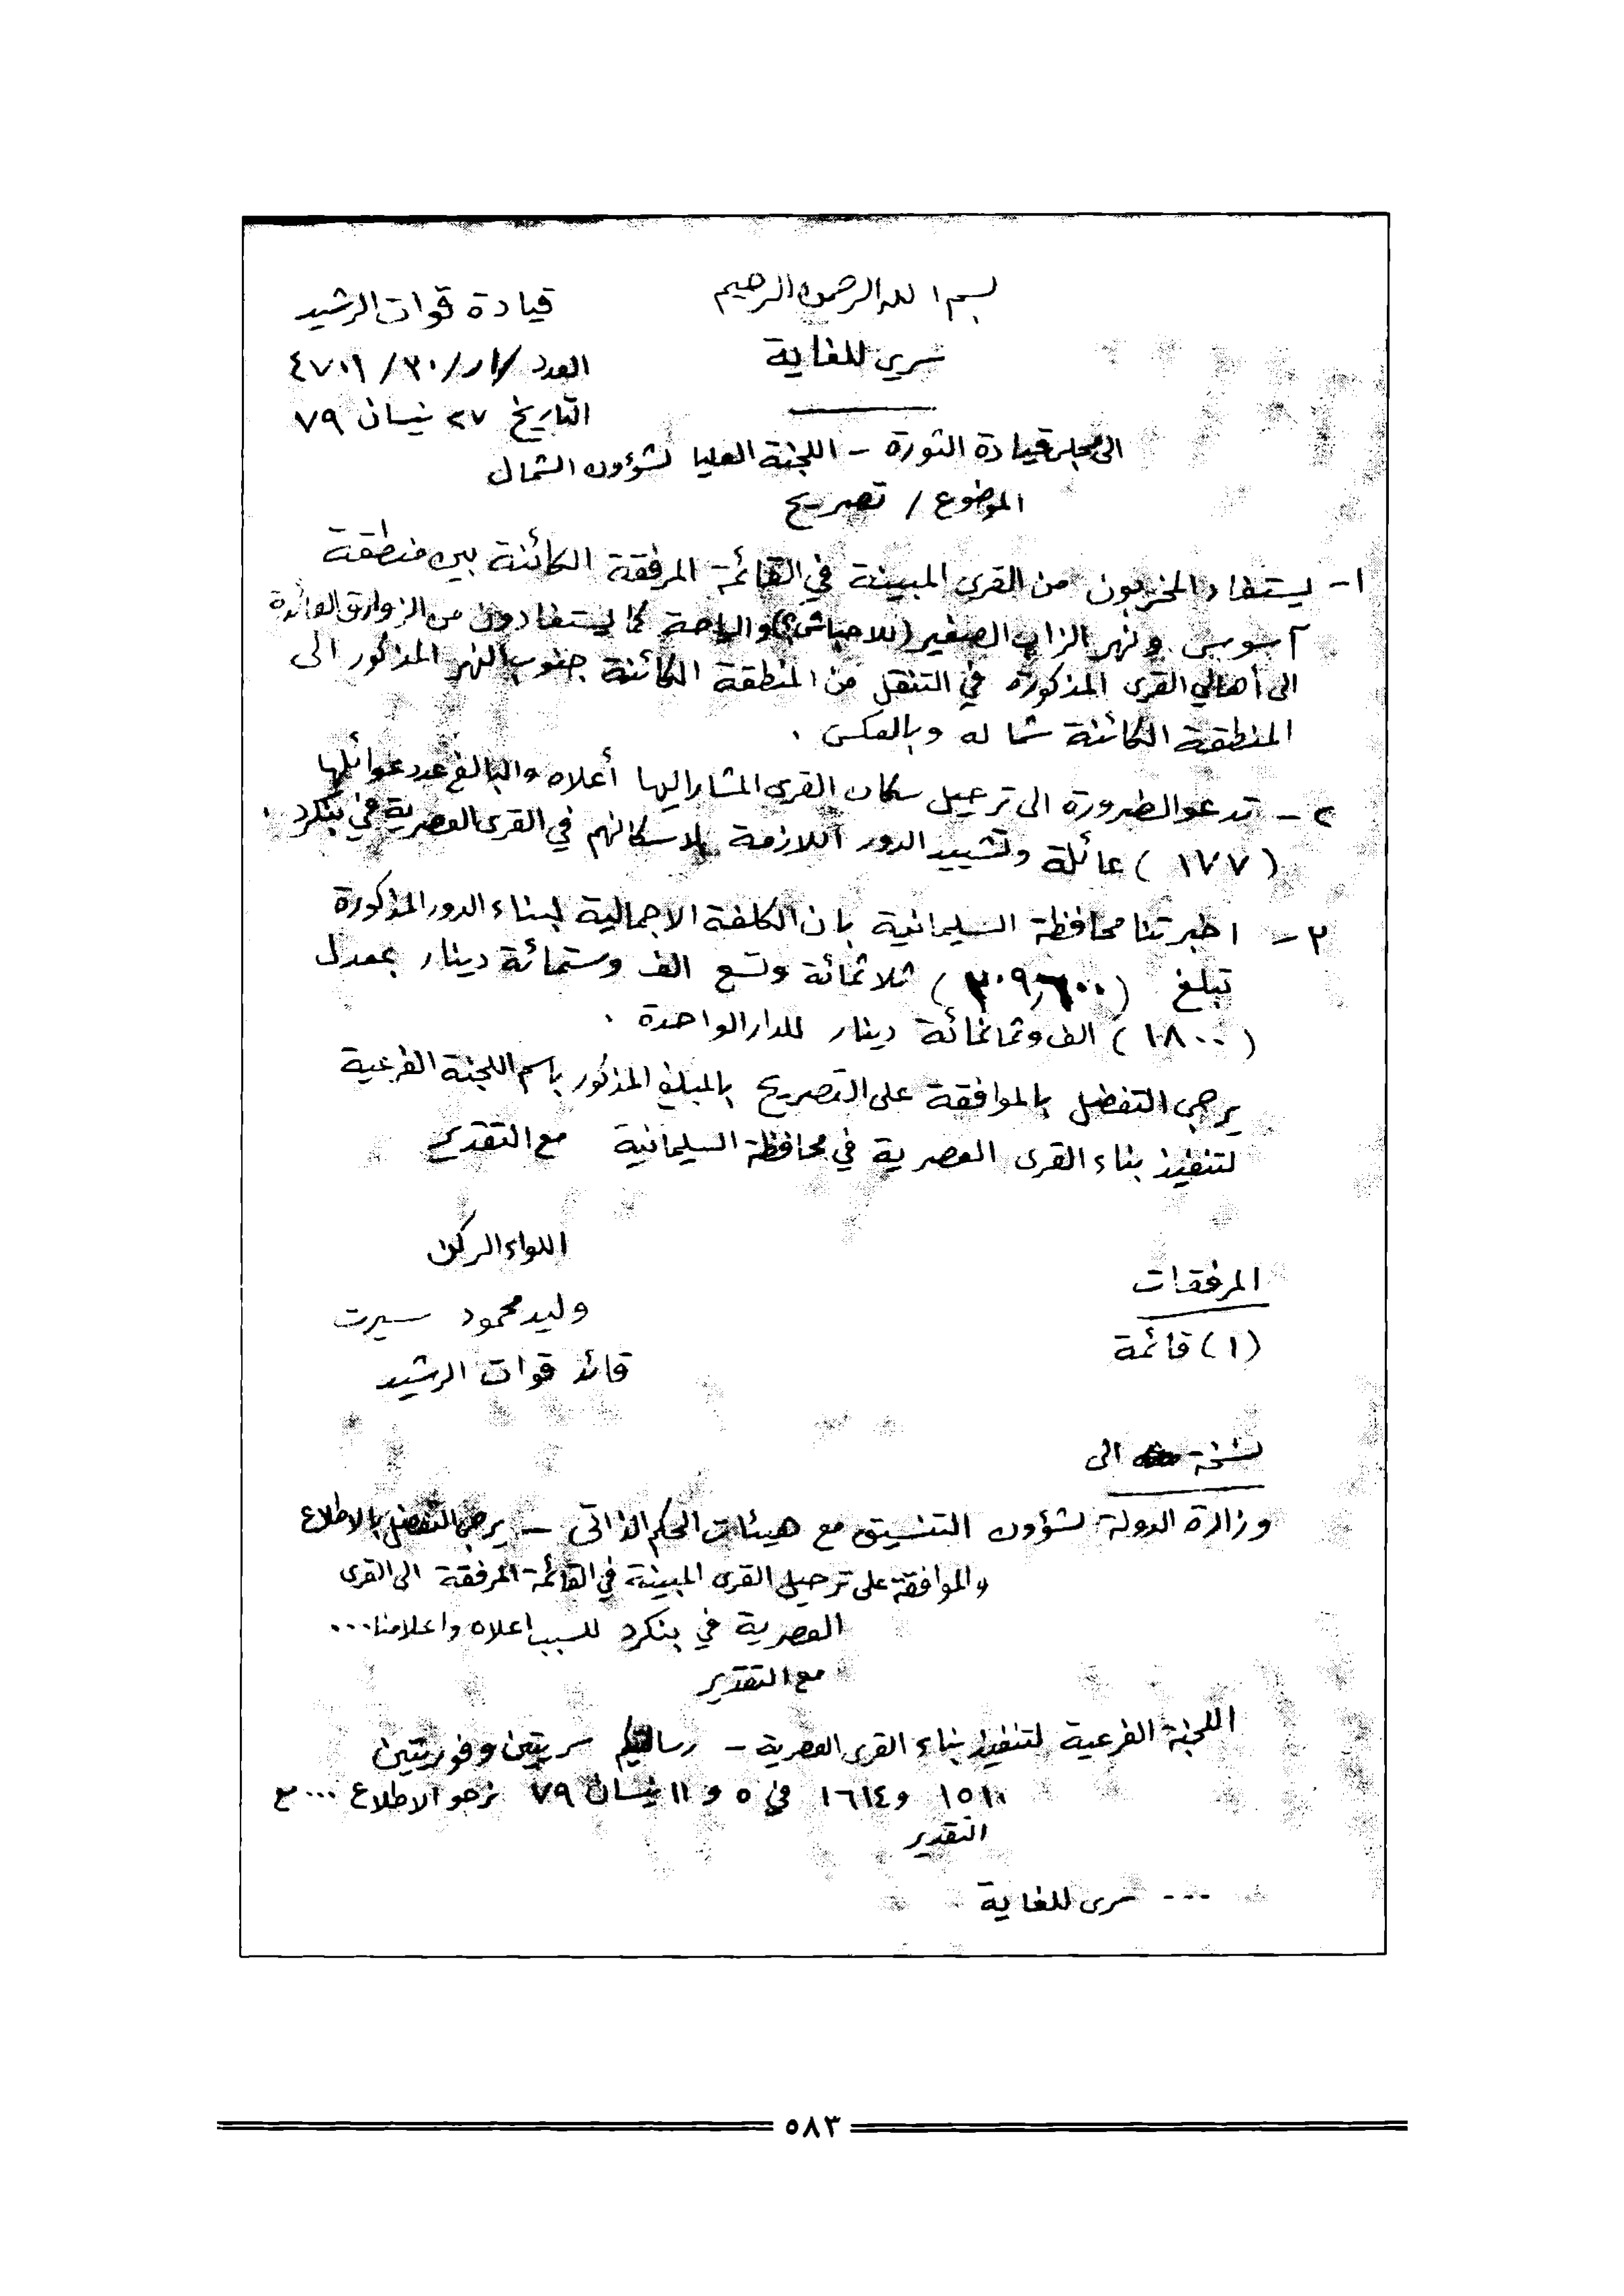 بسم الله الرحمن الرحيم
قيادة قوات الرشيد
سري للغاية
العدد / ٣٠ / ٤٧٠١
التاريخ ٢٧ نيسان ٧٩
الى مجلس قيادة الثورة - اللجنة العليا لشؤون الشمال
الموضوع / تصريح
١- يستفاد المخربون من القرى المبينة في القائمة المرفقة الكائنة بين منطقة
آسوس ونهر الزاب الصغير (للاحباش؟) والراحة كما يستفادون من الزوارق العائدة
الى أهالي القرى المذكورة في التنقل من المنطقة الكائنة جنوب النهر المذكور الى
المنطقة الكائنة شماله وبالعكس .
٢- تدعو الضرورة الى ترحيل سكان القرى المشار اليها أعلاه والبالغ عدد عوائلها
(١٧٧) عائلة وتشييد الدور اللازمة لاسكانهم في القرى العصرية في بنكرد .
٣- اخبرتنا محافظة السليمانية بان الكلفة الاجمالية لبناء الدور المذكورة
تبلغ (٣٠٩,٦٠٠) ثلاثمائة وتسع الف وستمائة دينار بمعدل
(١٨٠٠) الف وثمانمائة دينار للدار الواحدة .
يرجى التفضل بالموافقة على التصريح بالمبلغ المذكور باسم اللجنة الفرعية
لتنفيذ بناء القرى العصرية في محافظة السليمانية مع التقدير
اللواء الركن
المرفقات
وليد محمود سيرت
(١) قائمة
قائد قوات الرشيد
نسخة الى
وزارة الدولة لشؤون التنسيق مع هيئات الحكم الذاتي - يرجى التفضل بالاطلاع
والموافقة على ترحيل القرى المبينة في القائمة المرفقة الى القرى
العصرية في بنكرد للسبب اعلاه واعلامنا...
مع التقدير
اللجنة الفرعية لتنفيذ بناء القرى العصرية - رسالتيكم سريتين وفوريتين
١٥١٠ و ١٦١٤ في ٥ و ١١ نيسان ٧٩ نرجو الاطلاع ... مع
التقدير
--- سرى للغاية
٥٨٣